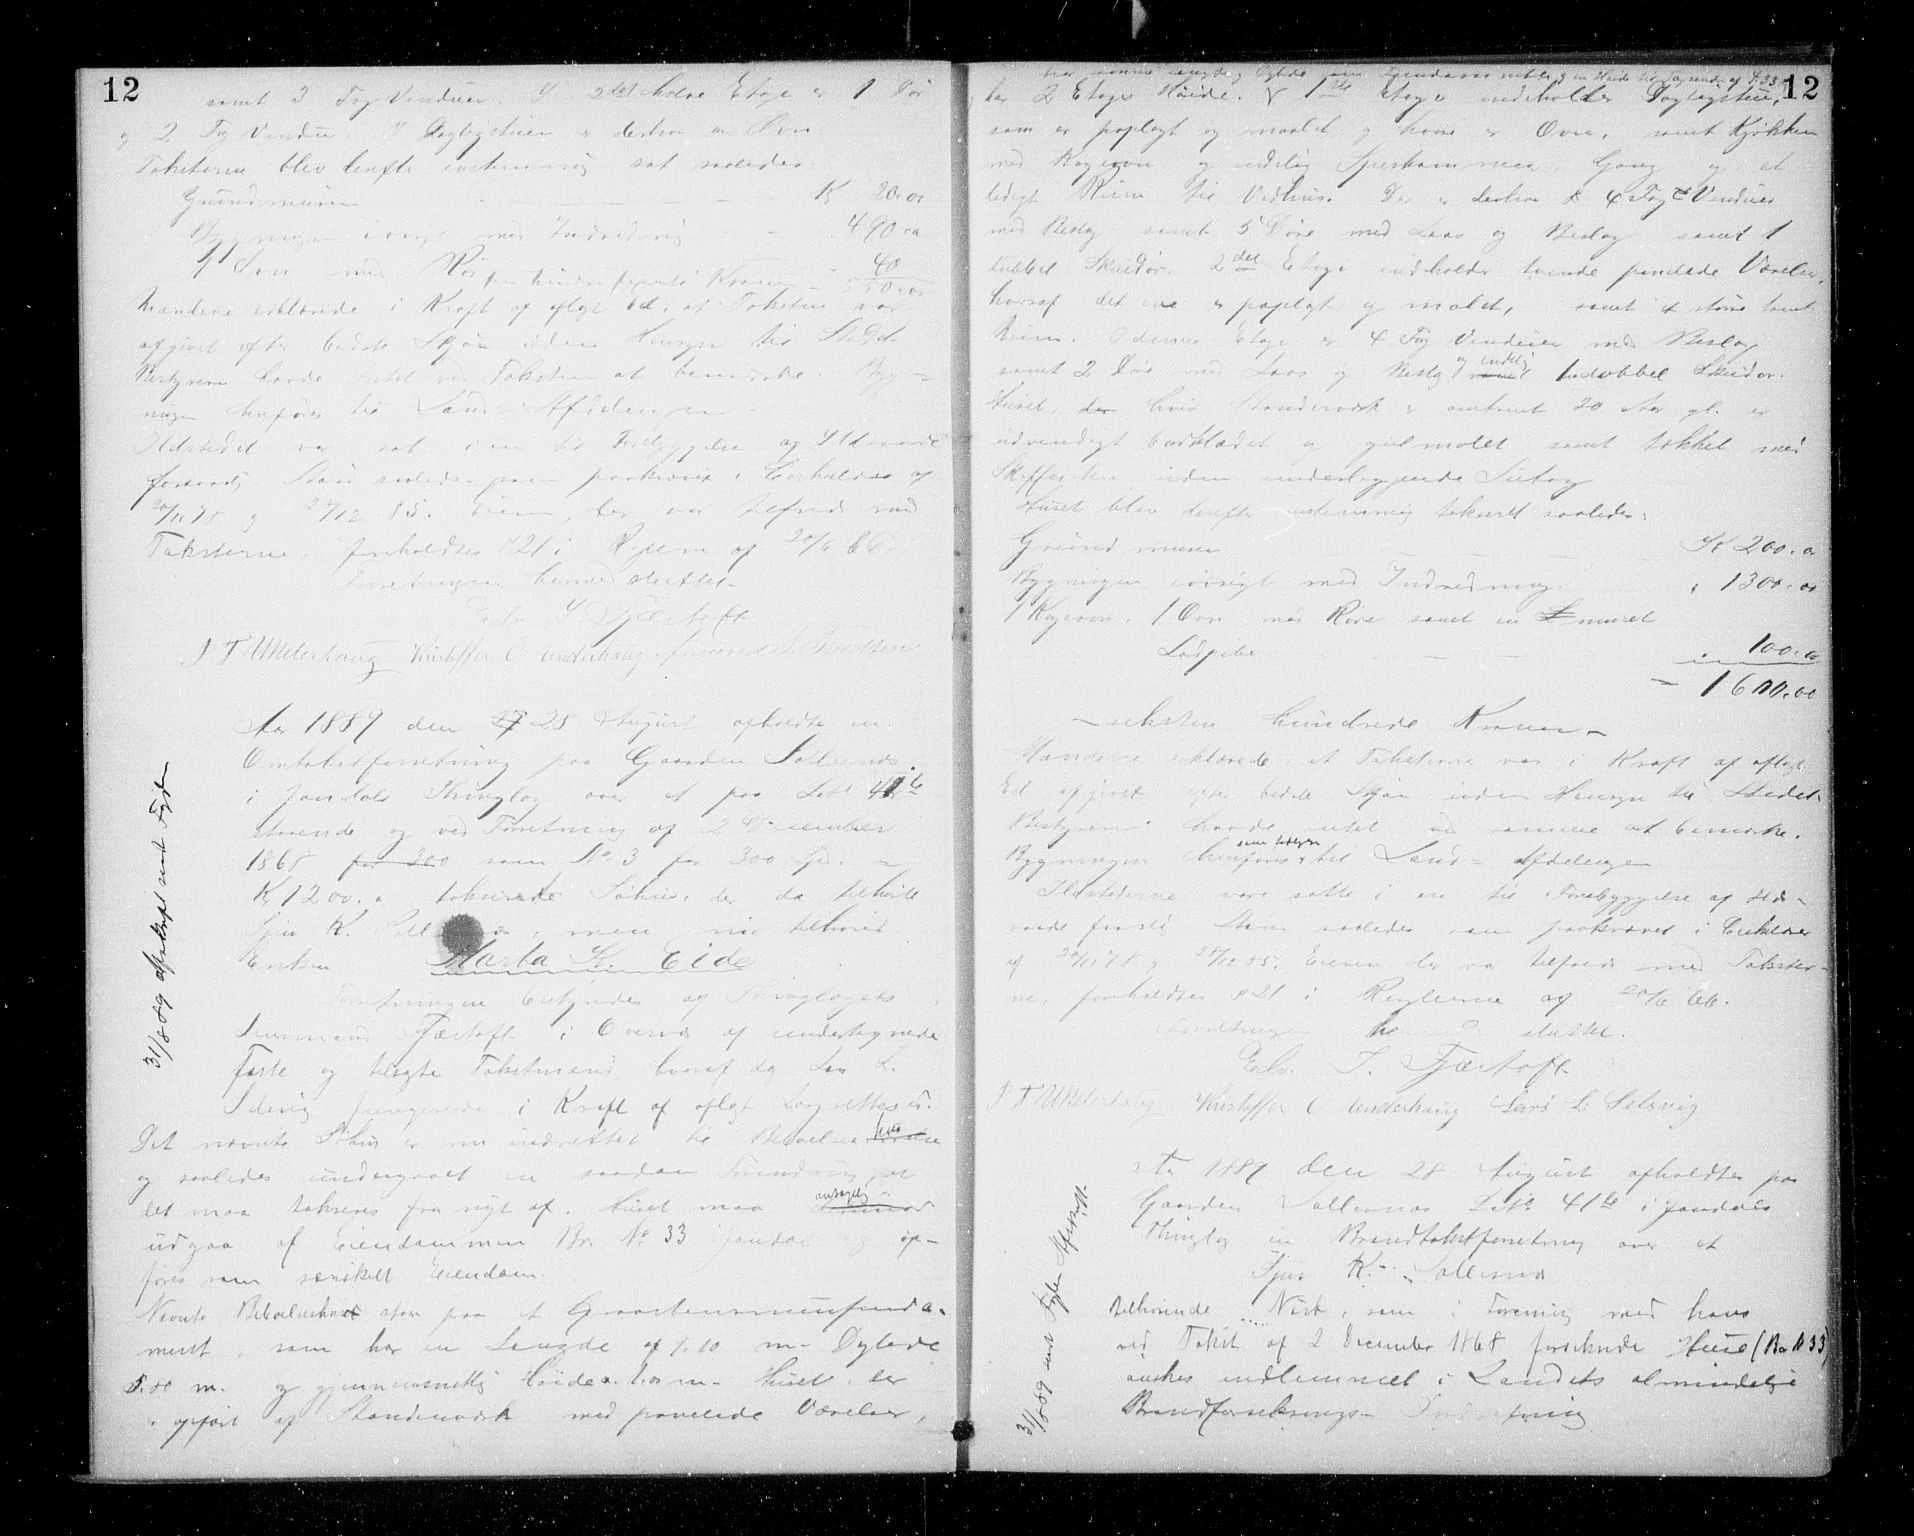 12
samt 3 Fag Vinduer. I 2det halve Etage er 1 Dør
og 2 Fag Vindu. I Dagligstuen er derhos en Ovn.
Taksterne blev derefter enstemmig sat saaledes:
Grundmuren K 20.00
Bygningen iøvrigt med Indredning 490.00
1 Ovn med Rør 40
fem hundrede femti Kroner 550.00
Mændene erklærede i Kraft af aflagt Ed, at Taksten var
afgivet efter bedste Skjøn uden Hensyn til Stedet
Bestyreren havde Intet ved Taksten at bemærke. Byg-
ningen henføres til Land-Afdelingen.
Ildstedet var sat i en til Forebyggelse af Ildsvaade
forsvarlig Stand saaledes som paakrævet i Cirkulære af
20/11 78 og 28/12 85. Eieren, der var tilfreds med
Taksterne, foreholdtes § 21 i Reglerne af 20/6 66
Forretningen hermed sluttet.
Edv. I. Fjærtoft
J T Underhaug Kristoffer O. Underhaug Amund S.
31/8 89 Afskrift sendt Fogden
Aar 1889 den 27 28 August afholdtes en
Omtakstforretning paa Gaarden Sollesnæs
i Jondals Thinglag over et paa Lb No 41 b
staaende og ved Forretning af 2 December
1868 for 300 som No 3 for 300 Spd. =
K 1200.00 takserede Søhus, der da tilhørte
Sjur K. Sollesnæs, men nu tilhører
Enken Marta K. Eide
Forretningen bestyredes af Thinglagets
Lensmand Fjærtoft i Overvær af undertegnede
faste og tilsagte Takstmænd hvoraf dog Lars L.
Selsvig fungerede i Kraft af aflagt Lagrettesed.
Det nævnte Søhus er nu indrettet til Beboelseshus
og saaledes undergaaet en saadan Forandring, at
det maa takseres fra nyt af. Huset maa antagelig
udgaa af Eiendommen Br. No 33 Jondal og op-
føres som særskilt Eiendom.
Nævnte Beboelseshus staar paa et Graastensmursfunda-
ment, som har en Længde af 9.10 m. Dybde
5.80 m. og gjennemsnitlig Høide Huset, der
er opført af Standerværk med panelede Værelser,
12
har 2 Etages Høide. I 1ste Etage indeholder Dagligstue,
som er paplagt og maalet og hvori er Ovn, samt Kjøkken
med Kogeovn og endelig Spiskammer, Gang og et
ledigt Rum til Vedhus. Der er derhos 4 Fag Vinduer
med Beslag samt 5 Døre med Laas og Beslag samt 1
dubbel Skuedør. 2det Etage indholder tvende panelede Værelser,
hvoraf det ene er paplagt og malet, samt et større tomt
Rum. I denne Etage er 4 Fag Vinduer med Beslag
samt 2 Døre med Laas og Beslag og endelig 1 dobbel Skuedør.
Huset, hvis Standerværk er omtrent 20 Aar gl. er
udvendigt bordklædet og gulmalet samt tækket med
Skiffersten uden underliggende Sutag
Huset blev derefter enstemmig takseret saaledes:
Grundmuren K 200.00
Bygningen iøvrigt med Indredning " 1300.00
1 Kogeovn, 1 Ovn med Rør samt en muret
Ladpibe " 100.00
= 1600.00
– seksten hundrede Kroner –
Mændene erklærede at Taksterne var i Kraft af aflagt
Ed afgivet efter bedste Skjøn uden Hensyn til Stedet.
Bestyreren havde intet ved samme at bemærke.
Bygningen henføres til Land-Afdelingen
Ildstederne vare satte i en til Forebyggelse af Ilds-
vaade forsvarlig Stand saaledes som paakrævet i Cirkulære
af 20/11 78 og 28/12 85. Eieren der var tilfreds med Takster-
ne, foreholdtes § 21 i Reglerne af 20/6 66.
Forretningen hermed sluttet.
Edv. I. Fjærtoft
J T Underhaug Kristoffer O Underhaug Lars L Selsvig
31/8 89 sendt Fogden Afskrift.
Aar 1889 den 28 August afholdtes paa
Gaarden Sollesnæs Lb No 41 b i Jondals
Thinglag en Brandtakstforretning over et
Sjur K. Sollesnæs
tilhørende Nøst, som i Forening med hans
ved Takst af 2 December 1868 forsikrede Huse (Br N 33)
ønskes indlemmet i Landets almindelige
Brandforsikrings- Indretning